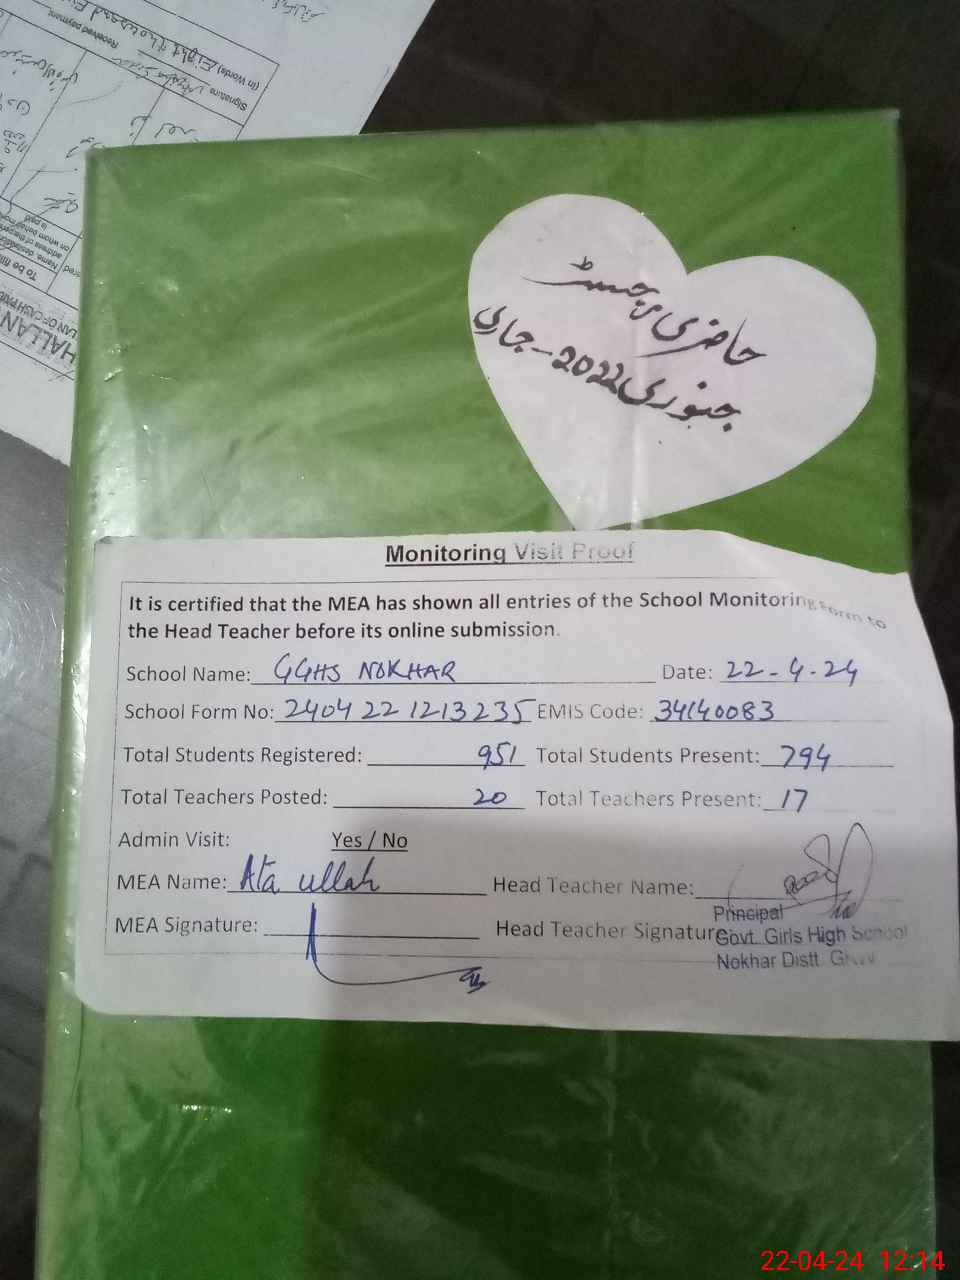 (In Words) Eight thousand
Received payment
Signature
HALLAN
حاضری رجسٹر
جنوری 2022 - جاری
Monitoring Visit Proof
It is certified that the MEA has shown all entries of the School Monitoring Form to
the Head Teacher before its online submission.
School Name: GGHS NOKHAR Date: 22-4-24
School Form No: 2404221213235 EMIS Code: 34140083
Total Students Registered: 951 Total Students Present: 794
Total Teachers Posted: 20 Total Teachers Present: 17
Admin Visit: Yes / No
MEA Name: Ata ullah Head Teacher Name:
MEA Signature: Head Teacher Signature:
Principal
Govt. Girls High School
Nokhar Distt.
22-04-24 12:14